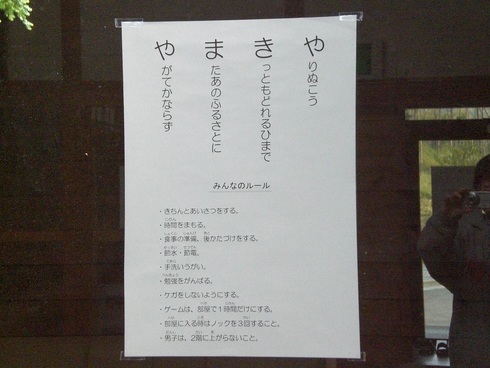 やりぬこう
きっともどれるひまで
またあのふるさとに
やがてかならず
みんなのルール
・きちんとあいさつをする。
・時間をまもる。
・食事の準備、後かたづけをする。
・節水・節電。
・手洗いうがい。
・勉強をがんばる。
・ケガをしないようにする。
・ゲームは、部屋で1時間だけにする。
・部屋に入る時はノックを3回すること。
・男子は、2階に上がらないこと。